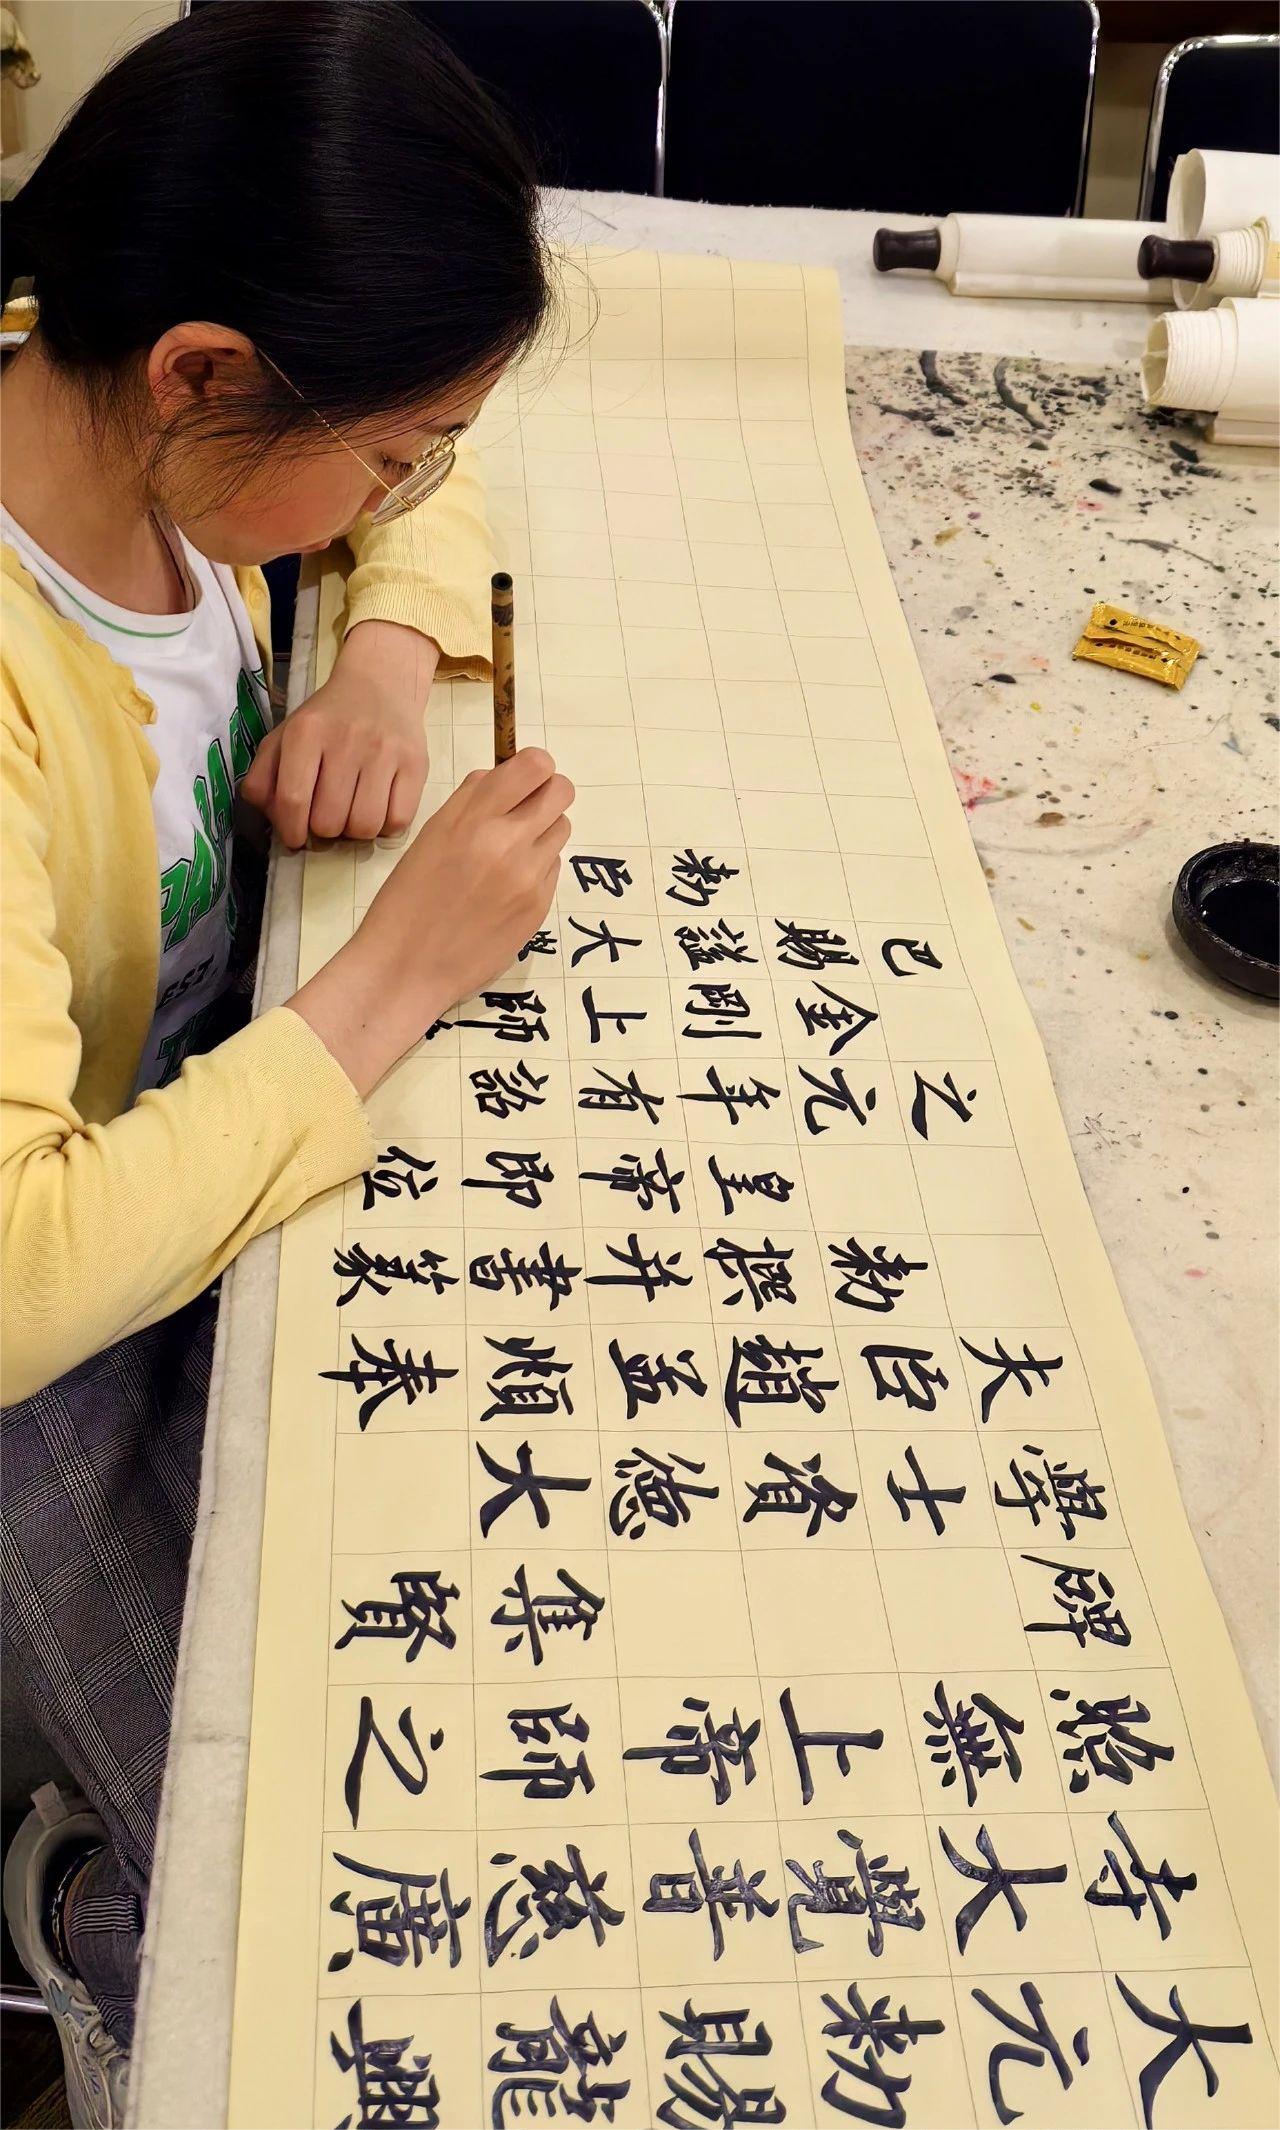 大元勅賜龍興
寺大覺普慈廣
照無上帝師之
碑 集賢
學士資德大
夫臣趙孟頫奉
勅撰并書篆
皇帝即位
之元年有詔
金剛上師
巴賜謚大
勅臣